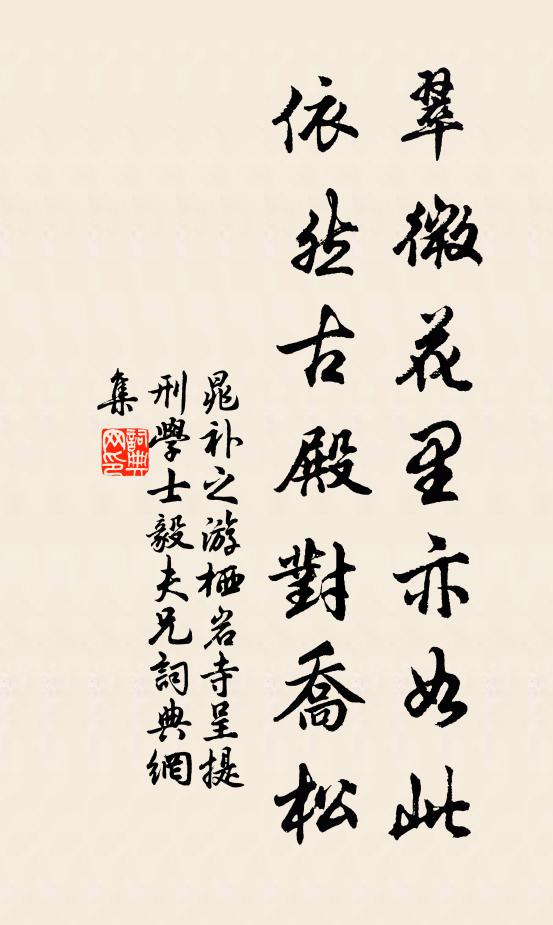 翠微花里亦如此
依然古殿對喬松
晁补之游栖岩寺呈提
刑學士毅夫兄詞典網
集
詞典
网印